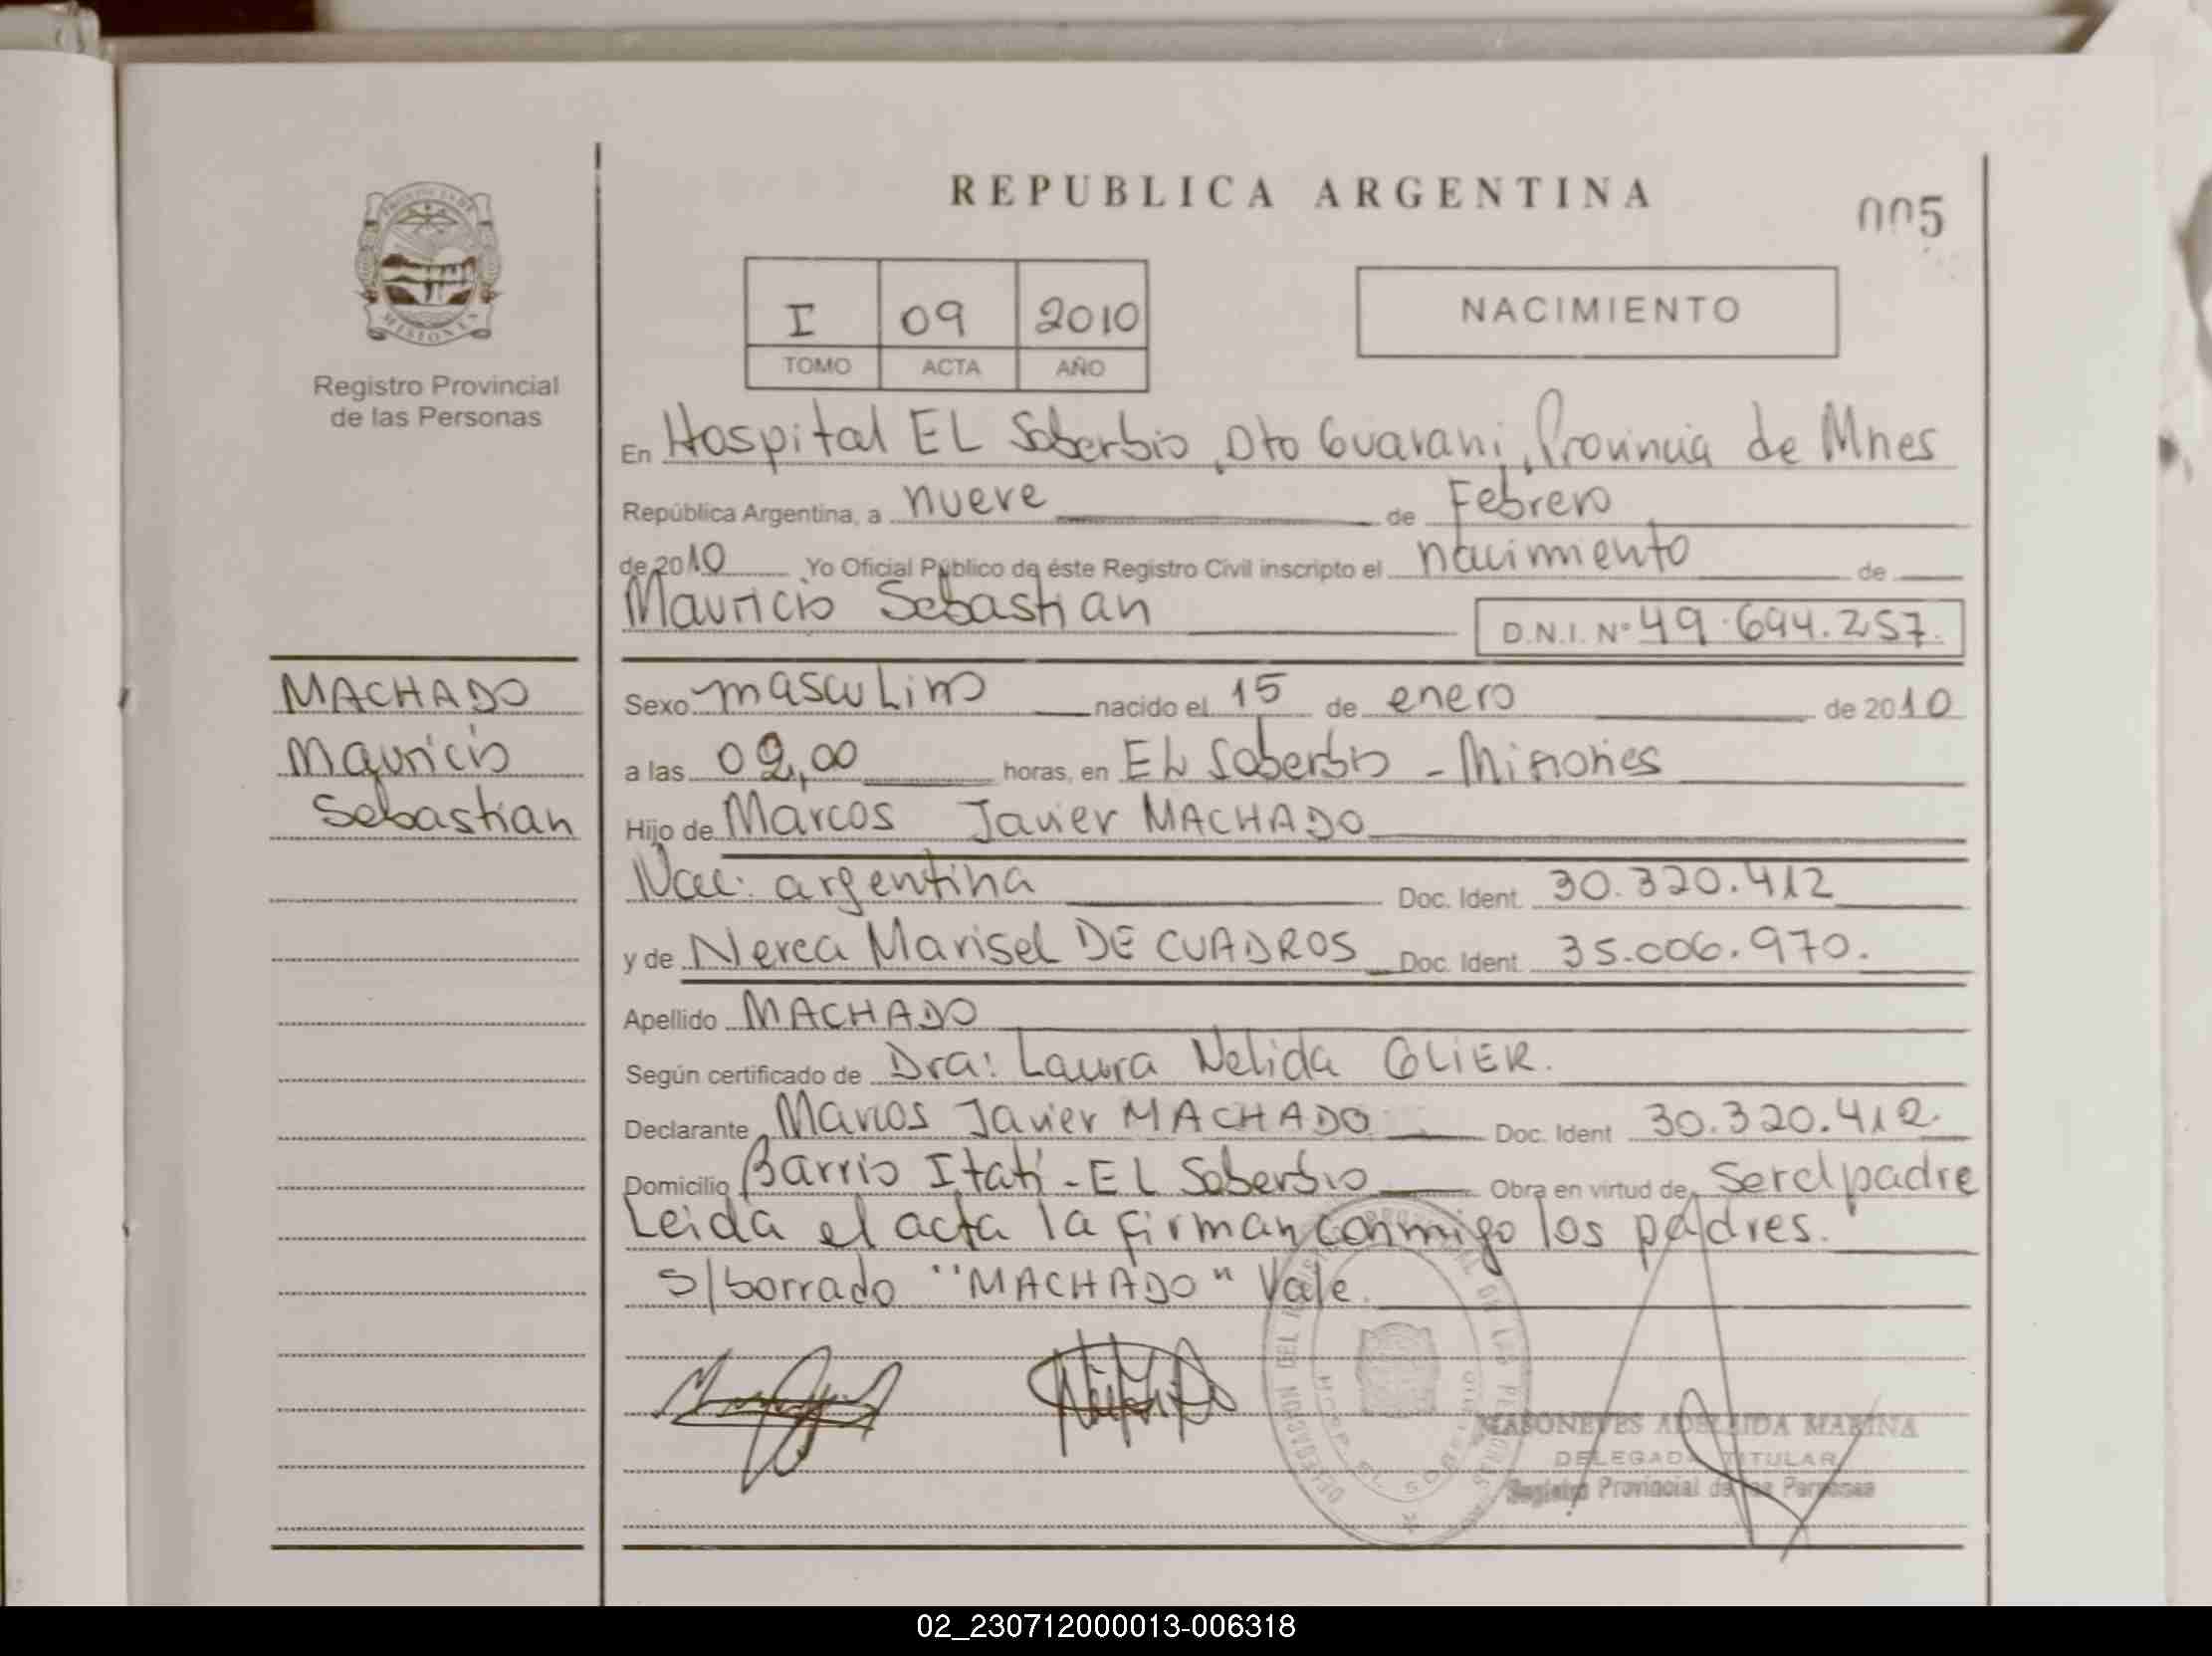 REPUBLICA ARGENTINA
005
I 09 2010
TOMO ACTA AÑO
NACIMIENTO
MISIONES
Registro Provincial
de las Personas
En Hospital EL Soberbio, Dto Guarani, Provincia de Mnes
República Argentina, a nueve de Febrero
de 2010 Yo Oficial Público de éste Registro Civil inscripto el nacimiento de
Mauricio Sebastian
D.N.I. Nº 49.694.257.
MACHADO
Mauricio
Sebastian
Sexo masculino nacido el 15 de enero de 2010
a las 09,00 horas, en EL Soberbio - Misiones
Hijo de Marcos Javier MACHADO
Nac: argentina Doc. Ident. 30.320.412
y de Nerea Marisel DE CUADROS Doc. Ident. 35.006.970.
Apellido MACHADO
Según certificado de Dra: Laura Nelida GLIER.
Declarante Marcos Javier MACHADO Doc. Ident 30.320.412.
Domicilio Barrio Itatí - EL Soberbio Obra en virtud de Ser el padre
Leida el acta la firman conmigo los padres.
S/borrado "MACHADO" Vale.
MASONEVES ADELAIDA MARINA
DELEGADA TITULAR
Registro Provincial de las Personas
02_230712000013-006318